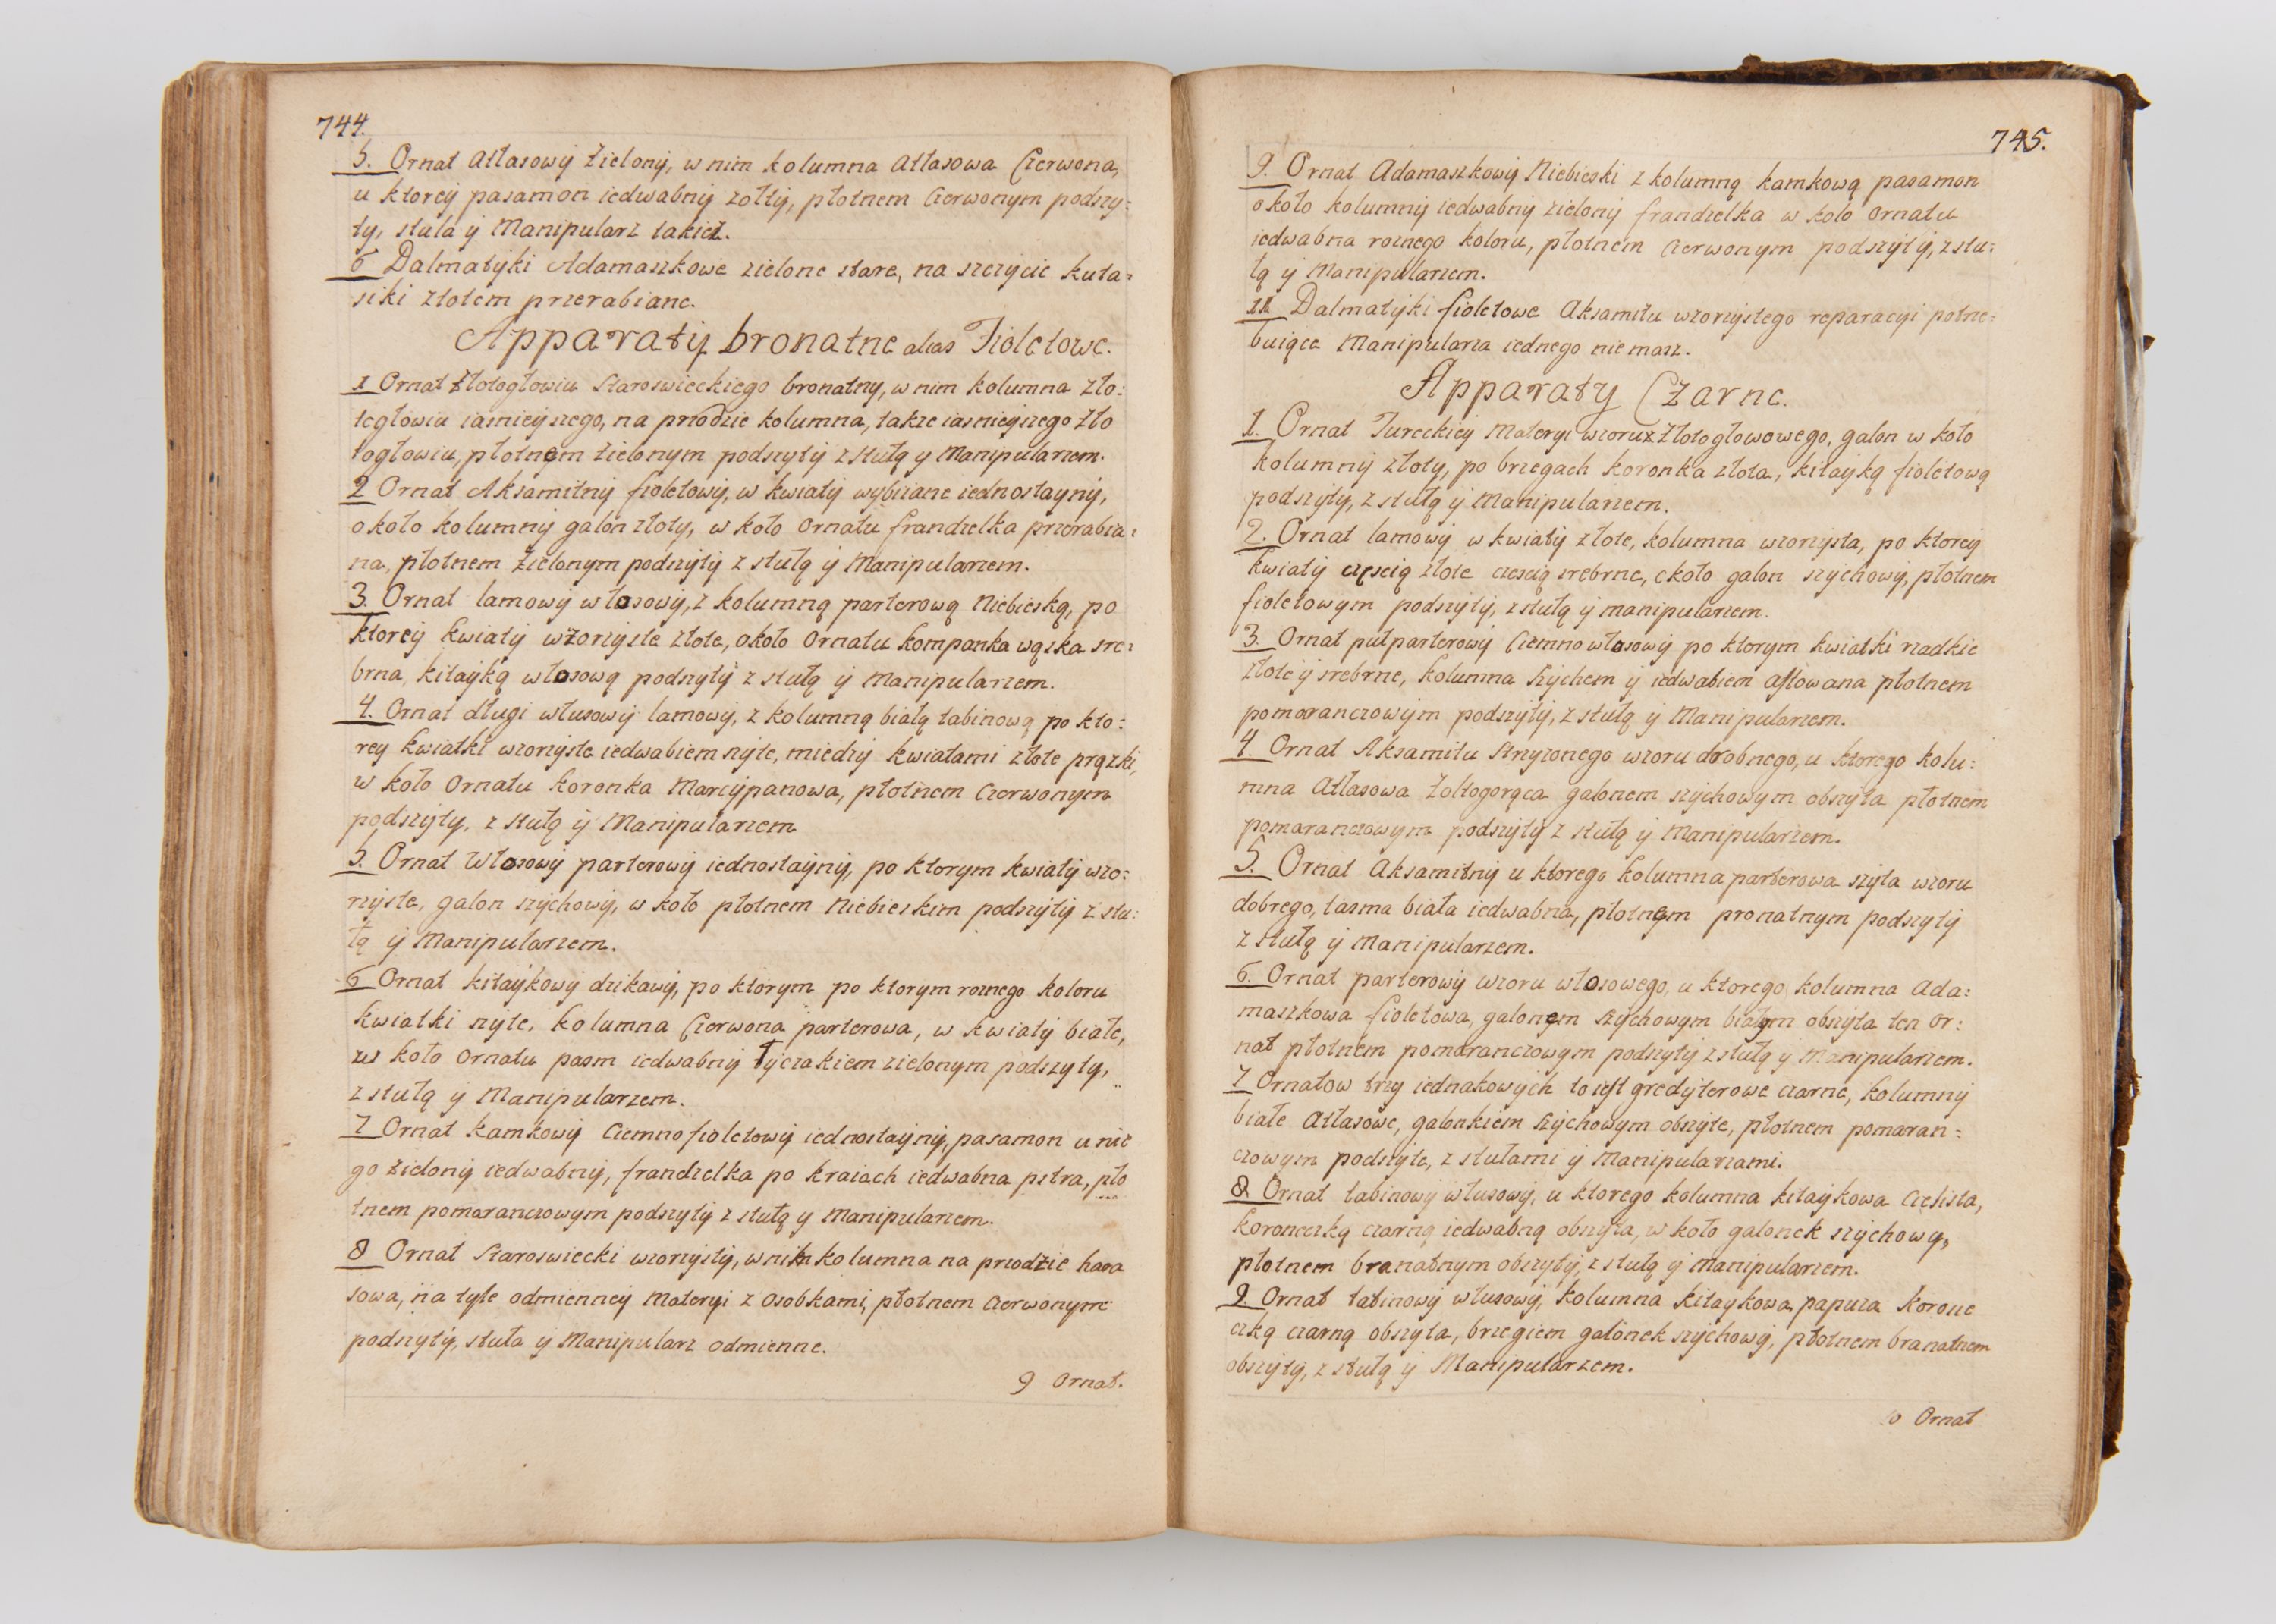 744.
5. Ornat Atłasowy Zielony, w nim kolumna Atłasowa Czerwona,
u ktorey pasamon iedwabny zołty, płotnem Czerwonym podszy:
ty, stula y Manipularz takiez.
6 Dalmatyki Adamaszkowe zielone stare, na szczycie kuta:
siki złotem przerabiane.
Apparaty bronatne alias Fioletowe.
1 Ornat złotogłowiu Staroswieckiego bronatny, w nim kolumna zło:
togłowiu iasnieyszego, na przodzie kolumna, takze iasnieyszego zło
togłowiu, płotnem zielonym podszyty z stułą y Manipularzem.
2 Ornat Aksamitny fioletowy, w kwiaty wybiiane iednostayny,
około kolumny galon złoty, w koło ornatu frandzelka przerabia:
na, płotnem zielonym podszyty z stułą y Manipularzem.
3. Ornat lamowy włosowy, z kolumną parterową Niebieską, po
ktorey kwiaty wzorzyste złote, około Ornatu kompanka wąska sre:
brna, kitayką włosową podszyty z stułą y Manipularzem.
4. Ornat długi włusowy lamowy, z kolumną białą tabinową po kto:
rey kwiatki wzorzyste iedwabiem szyte, miedzy kwiatami złote prązki,
w koło Ornatu koronka Marcypanowa, płotnem Czerwonym
podszyty, z stułą y Manipularzem
5. Ornat Włosowy parterowy iednostayny, po ktorym kwiaty wzo:
rzyste, galon szychowy, w koło płotnem Niebieskim podszyty z stu:
łą y Manipularzem.
6 Ornat kitaykowy dzikawy, po ktorym po ktorym roznego koloru
kwiatki szyte, kolumna Czerwona parterowa, w kwiaty białe,
w koło Ornatu pasm iedwabny Tyczakiem zielonym podszyty,
z stułą y Manipularzem.
7 Ornat kamkowy Ciemnofioletowy iednostayny, pasamon u nie
go zielony iedwabny, frandzelka po kraiach iedwabna pstra, pło
tnem pomaranczowym podszyty z stułą y Manipularzem.
8 Ornat Staroswiecki wzorzysty, w nim kolumna na przodzie hara
sowa, na tyle odmienney Materyi z osobkami, płotnem Czerwonym
podszyty, stuła y Manipularz odmienne.
9 Ornat.
745.
9. Ornat Adamaszkowy Niebieski z kolumną kamkową pasamon
około kolumny iedwabny zielony frandzelka w koło Ornatu
iedwabna roznego koloru, płotnem Czerwonym podszyty, z stu:
łą y Manipularzem.
Dalmatyki fioletowe Aksamitu wzorzystego reparacyi potrze:
buiące Manipularza iednego nie masz.
Apparaty Czarne.
1. Ornat Tureckiey Materyi wzoru złotogłowowego, galon w koło
kolumny złoty, po brzegach koronka złota, kitayką fioletową
podszyty, z stułą y Manipularzem.
2. Ornat lamowy w kwiaty złote, kolumna wzorzysta, po ktorey
kwiaty częscią złote czescią srebrne, około galon szychowy, płotnem
fioletowym podszyty, z stułą y manipularzem.
3. Ornat pułparterowy Ciemnowłosowy po ktorym kwiatki rzadkie
złote y srebrne, kolumna szychem y iedwabiem aftowana płotnem
pomaranczowym podszyty, z stułą y Manipularzem.
4. Ornat Aksamitu strzyzonego wzoru drobnego, u ktorego kolu:
mna Atłasowa Zołtogorąca galonem szychowym obszyta płotnem
pomaranczowym podszyty z stułą y Manipularzem.
5. Ornat Aksamitny u ktorego kolumna parterowa szyta wzoru
dobrego, tasma biała iedwabna, płotnem pronatnym podszyty
z stułą y Manipularzem.
6. Ornat parterowy wzoru włosowego, u ktorego kolumna Ada:
maszkowa fioletowa, galonem szychowym białym obszyta ten Or:
nat płotnem pomaranczowym podszyty z stułą y Manipularzem.
7 Ornatow trzy iednakowych to iest gredyterowe czarne, kolumny
białe Atłasowe, galonkiem szychowym obszyte, płotnem pomaran:
czowym podszyte, z stułami y Manipularzami.
8 Ornat tabinowy włusowy, u ktorego kolumna kitaykowa Cielista,
koroneczką czarną iedwabną obszyta, w koło galonek szychowy,
płotnem branatnym obszyty, z stułą y Manipularzem.
9 Ornat tabinowy włusowy, kolumna kitaykowa papuza korone
czką czarną obszyta, brzegiem galonek szychowy, płotnem branatnem
obszyty, z stułą y Manipularzem.
10 Ornat